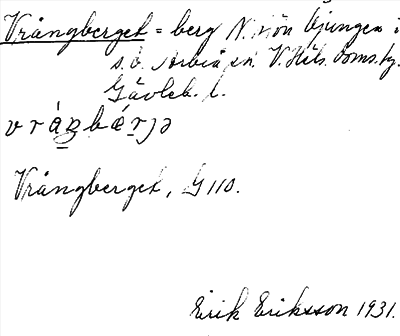 Vrångberget = berg N. sjön Ljungen i
s.d. Arbrå sn. V. Häls. doms.
Gävleb. l.
vrá̱ŋbǽ̱rjə
Vrångberget, G 110.
Erik Eriksson 1931.